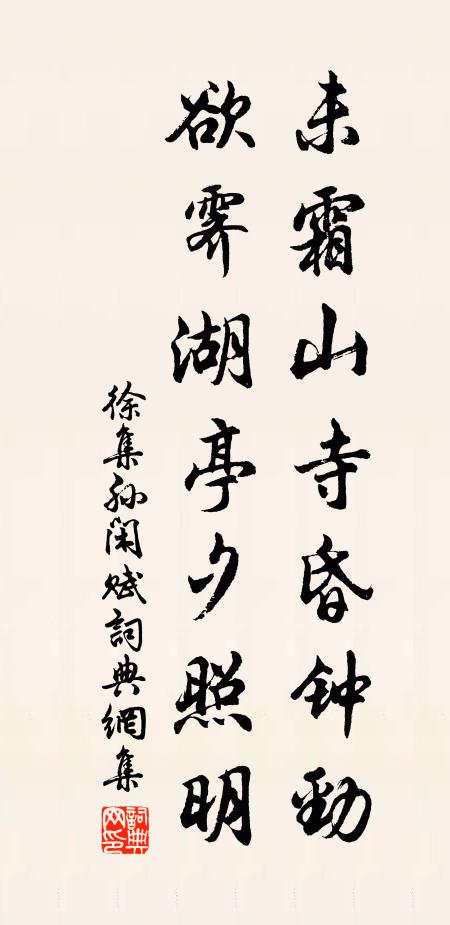 未霜山寺昏钟劲
欲霁湖亭夕照明
徐集孙闲赋詞典網集
詞典网印